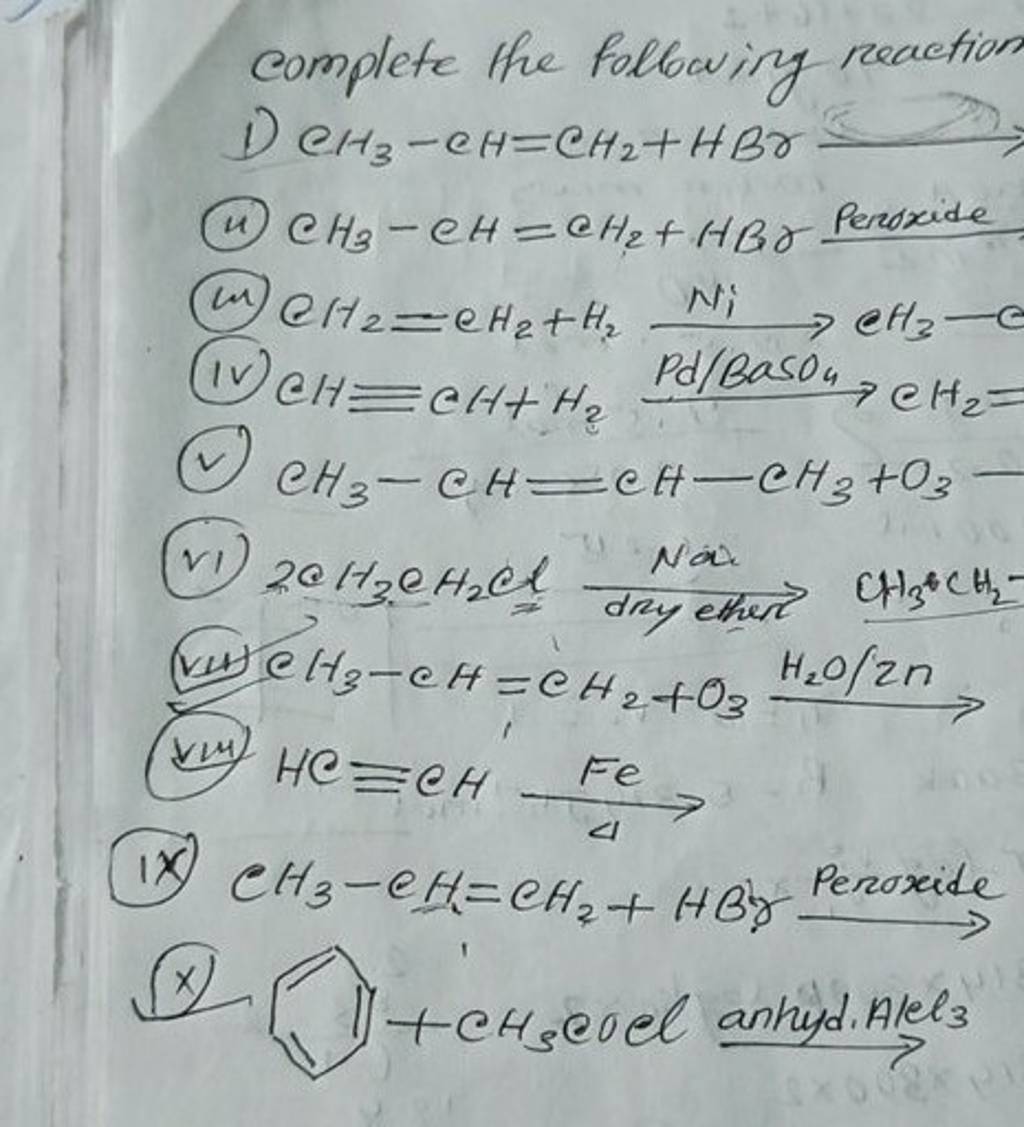 complete the following reaction
I) CH3-CH=CH2+HBr ⟶
(ii) CH3-CH=CH2+HBr Peroxide
(iii) CH2=CH2+H2 Ni ⟶ CH3-C
(iv) CH≡CH+H2 Pd/BaSO4 ⟶ CH2=
(v) CH3-CH=CH-CH3+O3 —
(vi) 2CH3CH2Cl Na ⟶ dry ether CH3CH2-
(vii) CH3-CH=CH2+O3 H2O/Zn ⟶
(viii) HC≡CH Fe ⟶ Δ
(ix) CH3-CH=CH2+HBr Peroxide ⟶
(x) +CH3COCl anhyd. AlCl3 ⟶